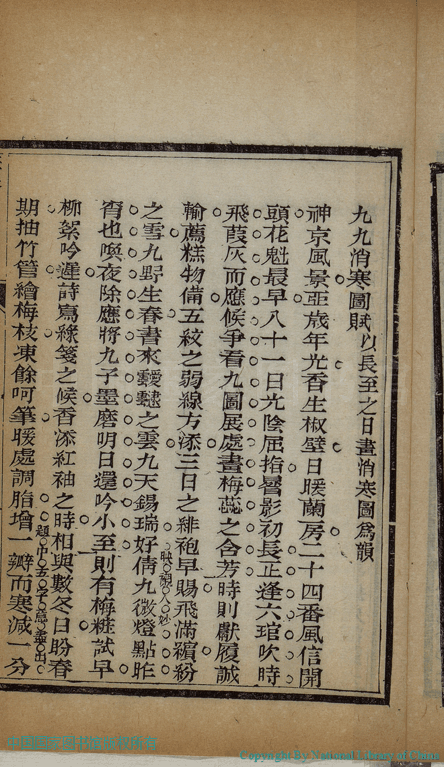 九九消寒圖賦以長至之日畫消寒圖爲韻
神京風景亞歲年光香生椒壁日暖蘭房二十四番風信開
頭花魁最早八十一日光陰屈指晷影初長正逢六琯吹時
飛葭灰而應候爭看九圖展處畫梅蕊之含芳時則獻履誠
輸薦糕物備五紋之弱線方添三日之緋袍早賜飛滿繽紛
之雪九野生春書來靉靆之雲九天錫瑞好倩九微燈點昨
宵也喚夜除應將九子墨磨明日還吟小至則有梅粧試早
柳絮吟遲詩寫綠箋之候香添紅袖之時相與數冬日盼春
期抽竹管繪梅枝凍餘呵筆暖處調脂增一瓣而寒減一分
Copyright by National Library of China